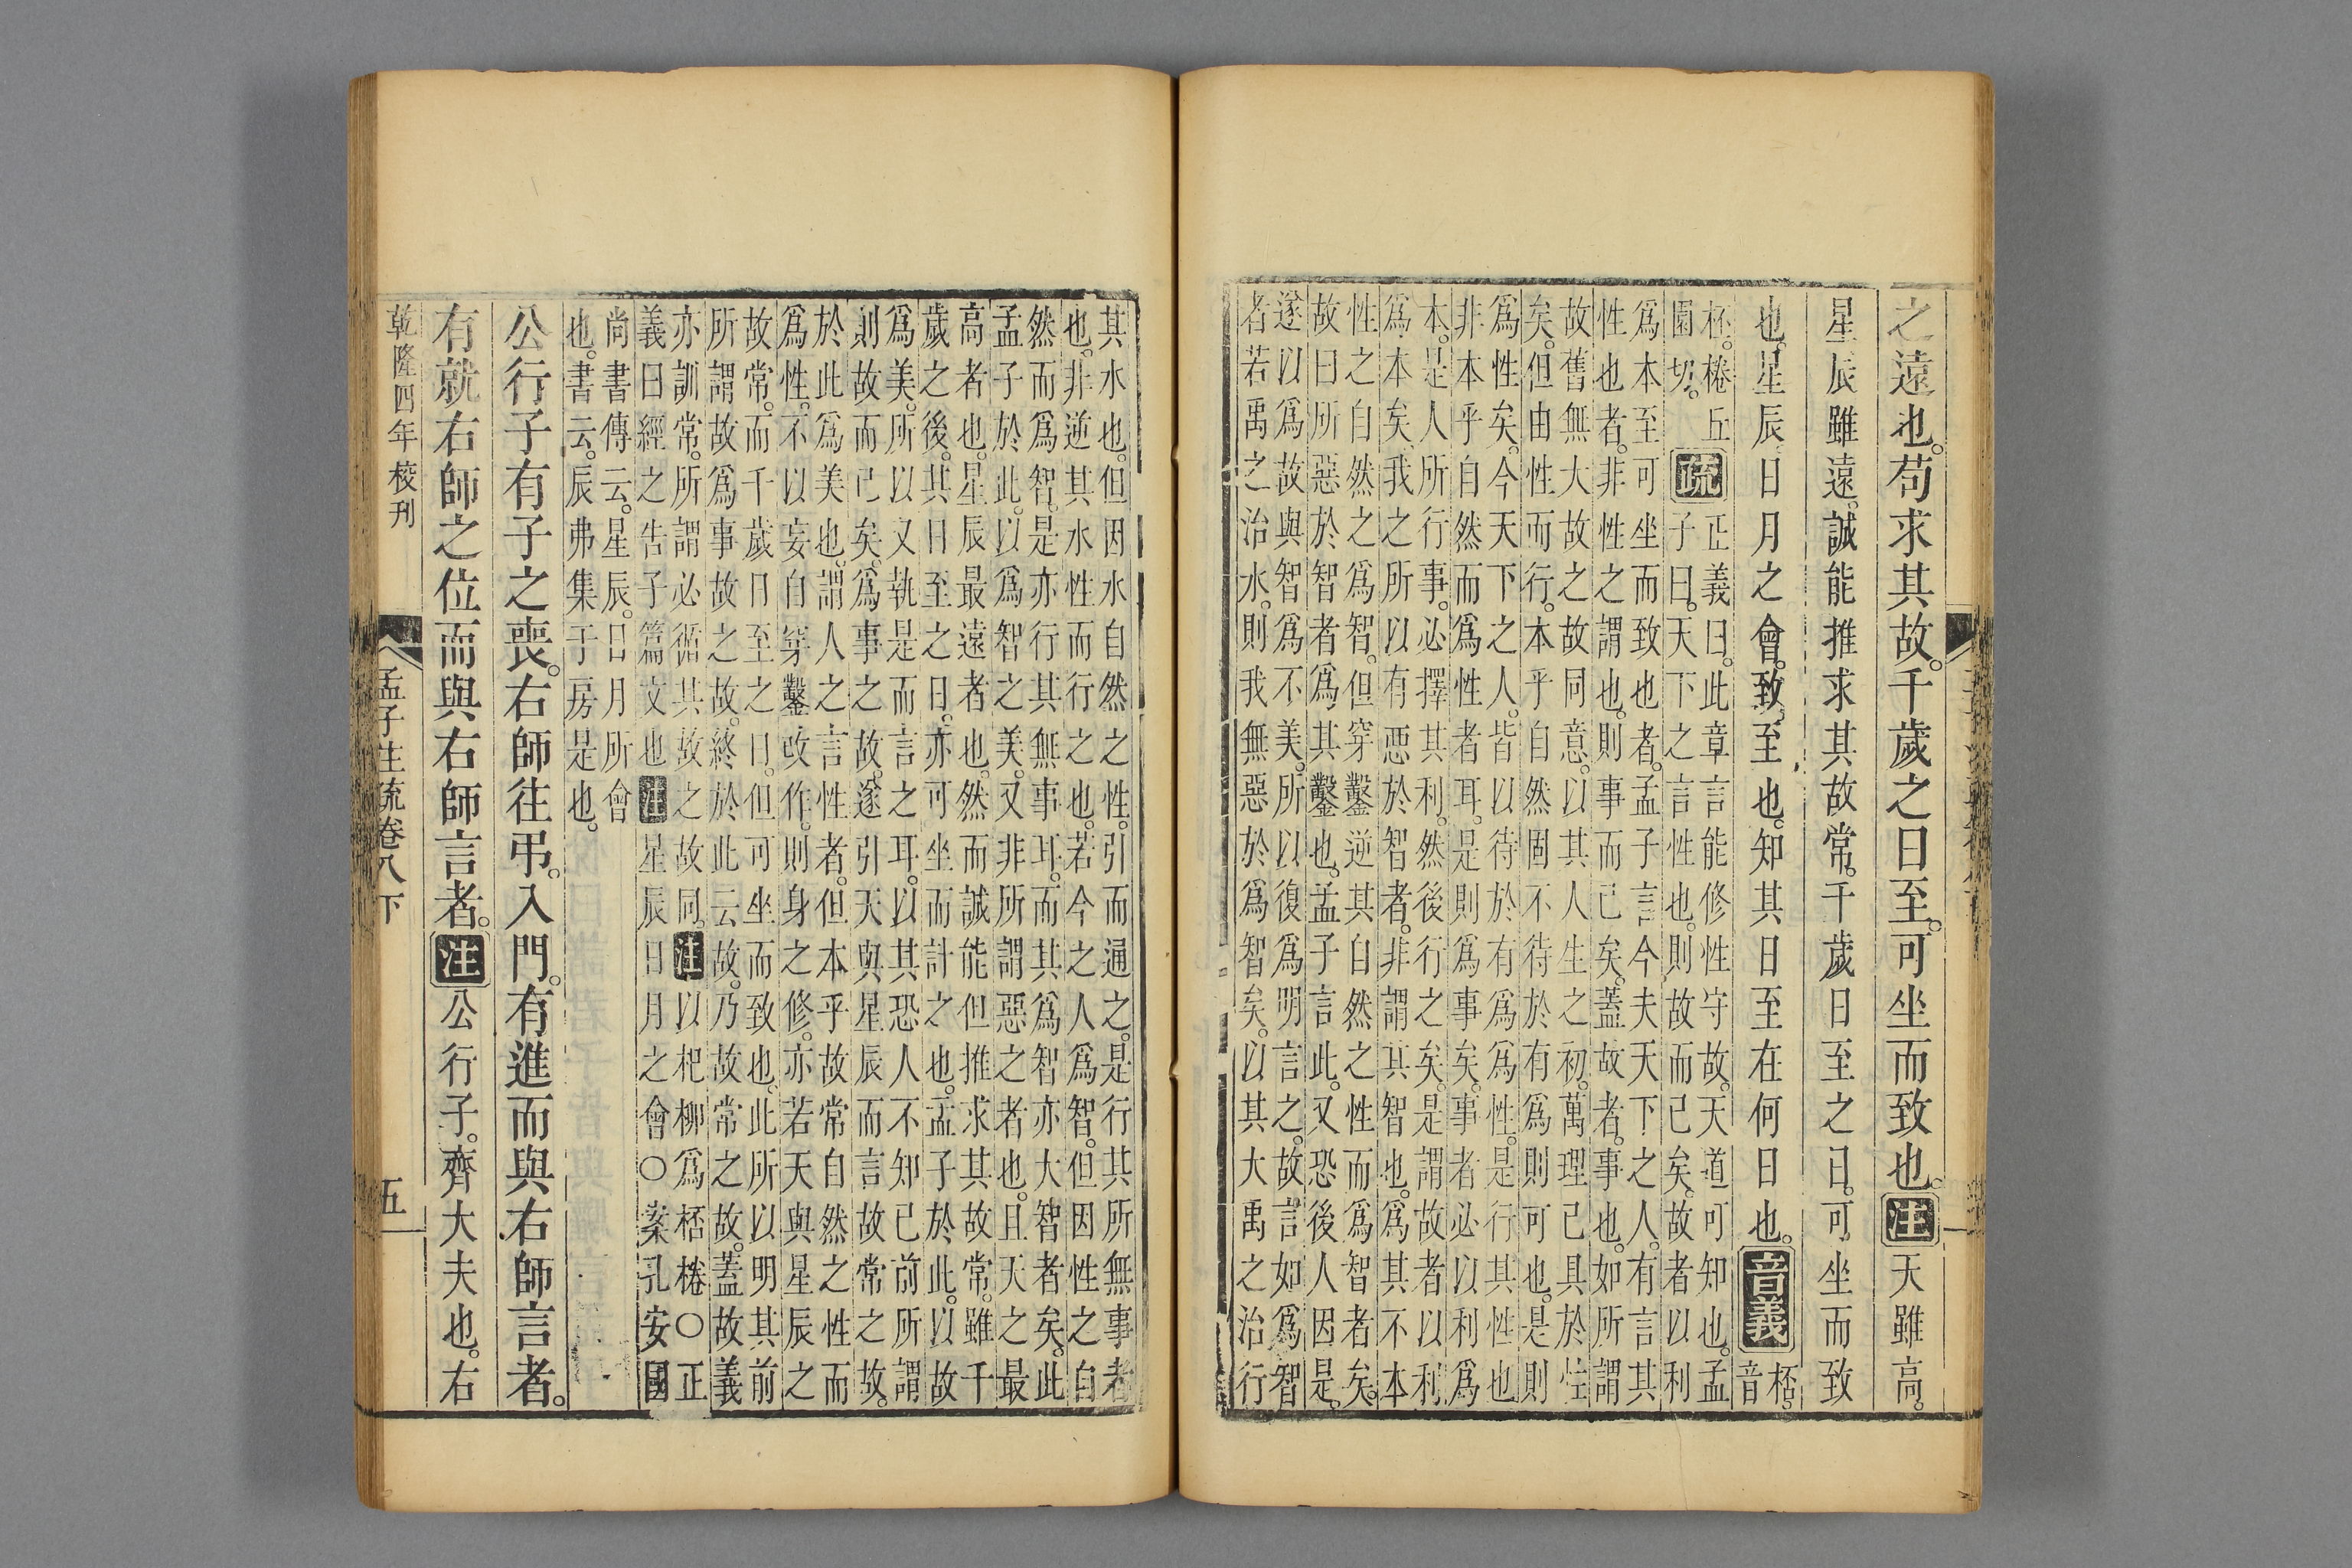 之遠也。苟求其故。千歲之日至。可坐而致也。注天雖高。
星辰雖遠。誠能推求其故常。千歲日至之日。可坐而致
也。星辰日月之會。致至也。知其日至在何日也。音義桮。音
杯。棬丘園切。疏正義曰。此章言能修性守故。天道可知也。孟
子曰。天下之言性也。則故而已矣。故者以利
爲本至可坐而致也者。孟子言今夫天下之人。有言其
性也者。非性之謂也。則事而已矣。蓋故者。事也。如所謂
故舊無大故之故同意。以其人生之初。萬理已具於性
矣。但由性而行。本乎自然固不待於有爲則可也。是則
爲性矣。今天下之人。皆以待於有爲爲性。是行其性也
非本乎自然而爲性者耳。是則爲事矣。事者必以利爲
本。是人所行事。必擇其利。然後行之矣。是謂故者以利
爲本矣。我之所以有惡於智者。非謂其智也。爲其不本
性之自然之爲智。但穿鑿逆其自然之性而爲智者矣。
故曰所惡於智者爲其鑿也。孟子言此。又恐後人因是。
遂以爲故與智爲不美。所以復爲明言之。故言如爲智
者若禹之治水。則我無惡於爲智矣。以其大禹之治行
其水也。但因水自然之性。引而通之。是行其所無事者
也。非逆其水性而行之也。若今之人爲智。但因性之自
然而爲智。是亦行其無事耳。而其爲智亦大智者矣。此
孟子於此。以爲智之美。又非所謂惡之者也。且天之最
高者也。星辰最遠者也。然而誠能但推求其故常。雖千
歲之後。其日至之日。亦可坐而計之也。孟子於此。以故
爲美。所以又執是而言之耳。以其恐人不知已前所謂
則故而已矣。爲事之故。遂引天與星辰而言故常之故。
於此爲美也。謂人之言性者。但本乎故常自然之性而
爲性。不以妄自穿鑿改作。則身之修。亦若天與星辰之
故常。而千歲日至之日。但可坐而致也。此所以明其前
所謂故爲事故之故。終於此云故。乃故常之故。蓋故義
亦訓常。所謂必循其故之故同。注以杞柳爲桮棬〇正
義曰經之告子篇文也注星辰日月之會〇案孔安國
尚書傳云。星辰。日月所會
也。書云。辰弗集于房是也。
公行子有子之喪。右師往弔。入門。有進而與右師言者。
有就右師之位而與右師言者。注公行子。齊大夫也。右
乾隆四年校刊
孟子注疏卷八下
五